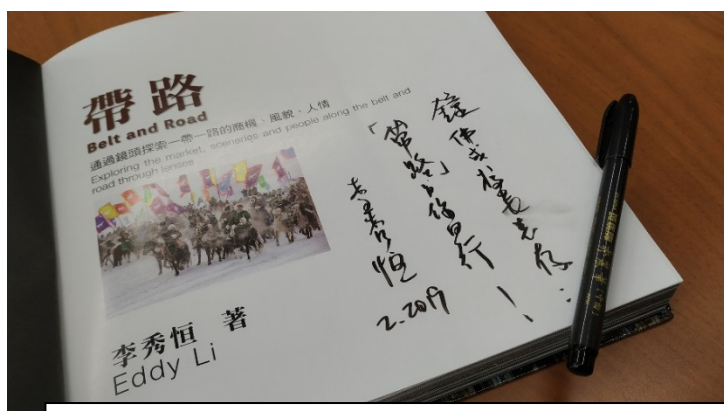 帶路
Belt and Road
通過鏡頭探索一帶一路的商機、風貌、人情
Exploring the market, sceneries and people along the belt and
road through lenses
李秀恒 著
Eddy Li
「帶路」
李秀恒
2.2019